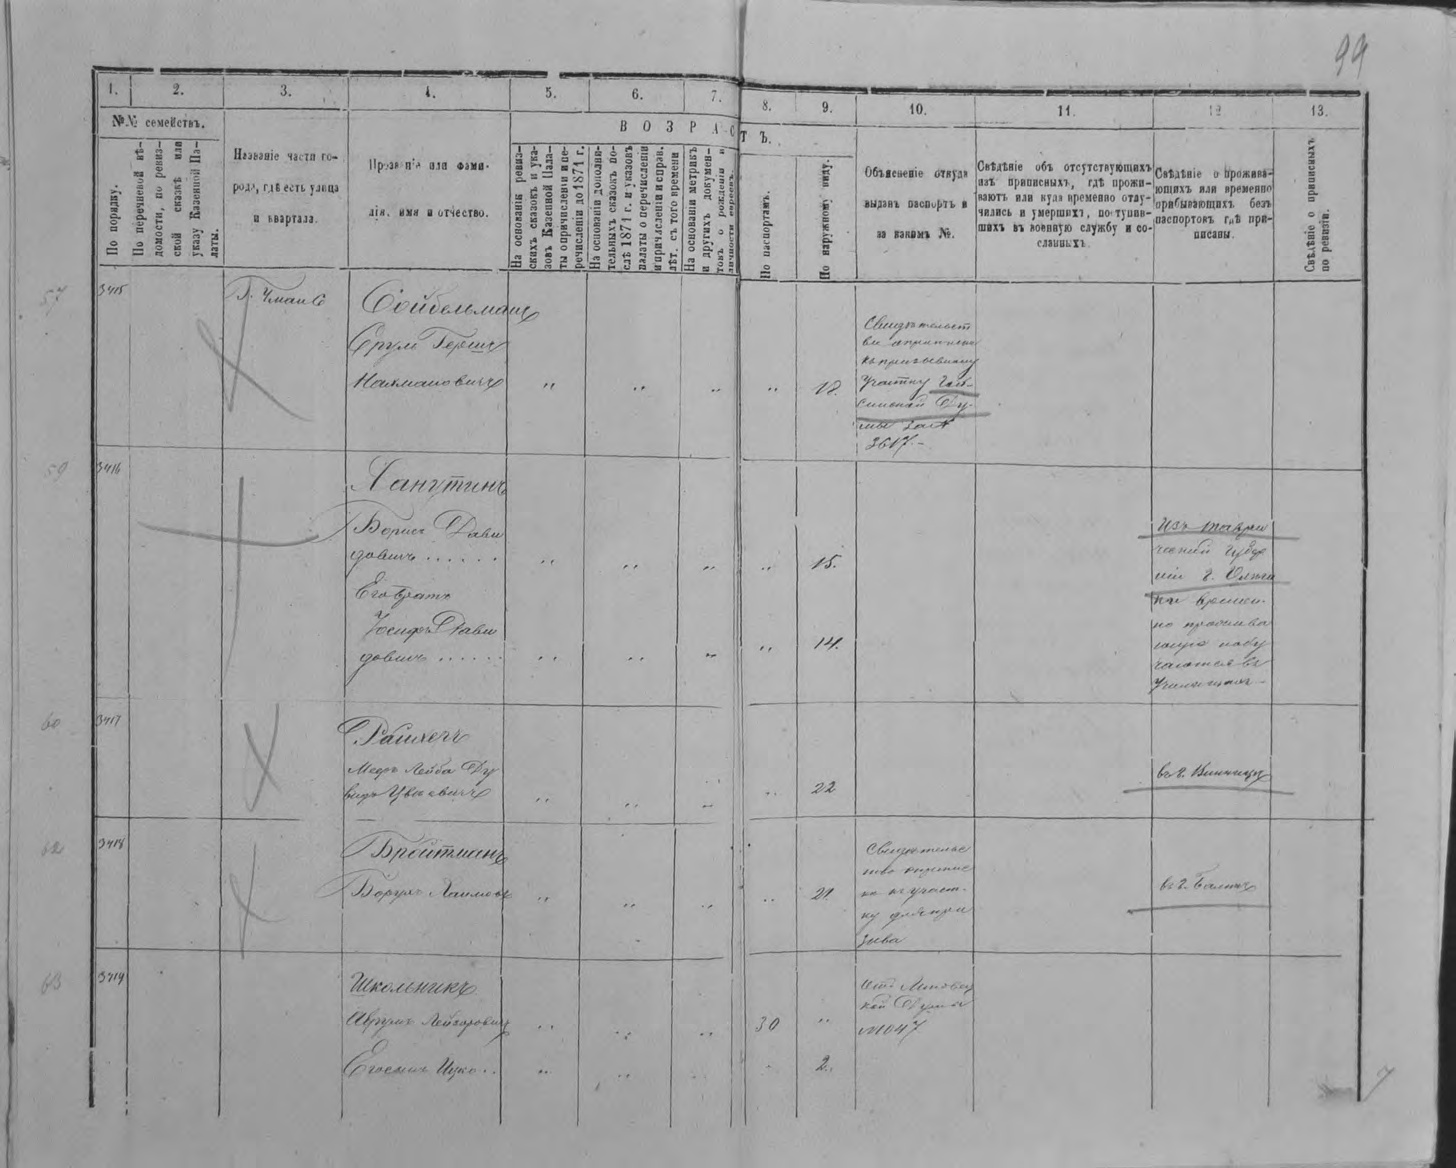 99
1.
2.
3.
4.
5.
6.
7.
8.
9.
10.
11.
12
13.
№№ семействъ.
По порядку.
По перечневой вѣ-
домости, по ревиз-
ской сказкѣ или
указу Казенной Па-
латы.
Названіе части го-
рода, гдѣ есть улица
и квартала.
Прозваніе или фами-
лія, имя и отчество.
ВОЗРАСТЪ.
На основаніи ревиз-
скихъ сказокъ и ука-
зовъ Казенной Пала-
ты о причисленіи и пе-
речисленіи до 1871 г.
На основаніи дополни-
тельныхъ сказокъ по-
слѣ 1871 г. и указовъ
палаты о перечисленіи
и причисленіи и справ.
лѣт. съ того времени
На основаніи метрикъ
и другихъ докумен-
товъ о рожденіи и
личности евреевъ.
По паспортамъ.
По наружному виду.
Объясненіе откуда
выданъ паспортъ и
за какимъ №.
Свѣдѣніе объ отсутствующихъ
изъ приписныхъ, гдѣ прожи-
ваютъ или куда временно отлу-
чились и умершихъ, поступив-
шихъ въ военную службу и со-
сланныхъ.
Свѣдѣніе о прожива-
ющихъ или временно
прибывающихъ безъ
паспортовъ гдѣ при-
писаны.
Свѣдѣніе о приписныхъ
по ревизіи.
57
3415
Г. Умань
Сойбельманъ
Срулъ Гершъ
Нахмановичъ
18.
Свидѣтельст
къ призывному
участку
Думы за №
3617.
59
3416
Ханутинъ
Борисъ Дави
довичъ
15.
Его братъ
Іосифъ Дави
довичъ
14.
Изъ Таври
ческой губер
ніи г.
времен
но прожива
60
3417
Райхеръ
Лейба Ду
видъ
22
въ г. Винницѣ
62
3418
Бройтманъ
Борухъ Хаимовъ
21
Свидѣтельс
тво о припис
ке къ участ-
ку для при
зыва
въ г. Балтѣ
63
3419
Школьникъ
Аврумъ Лейзоровичъ
30
Отъ
кой Думы
№1047
Его сынъ Ицко
2.
7